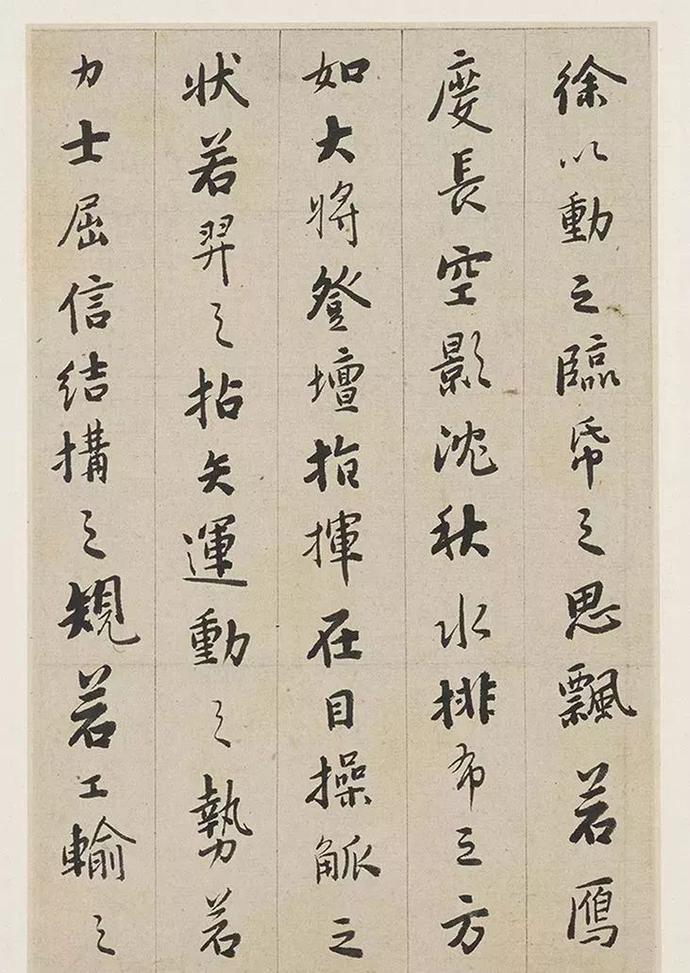 徐以動之臨帋之思飄若鴈
度長空影沈秋水排布之方
如大將登壇指揮在目操觚之
狀若羿之拈矢運動之勢若
力士屈信結構之規若工輸之